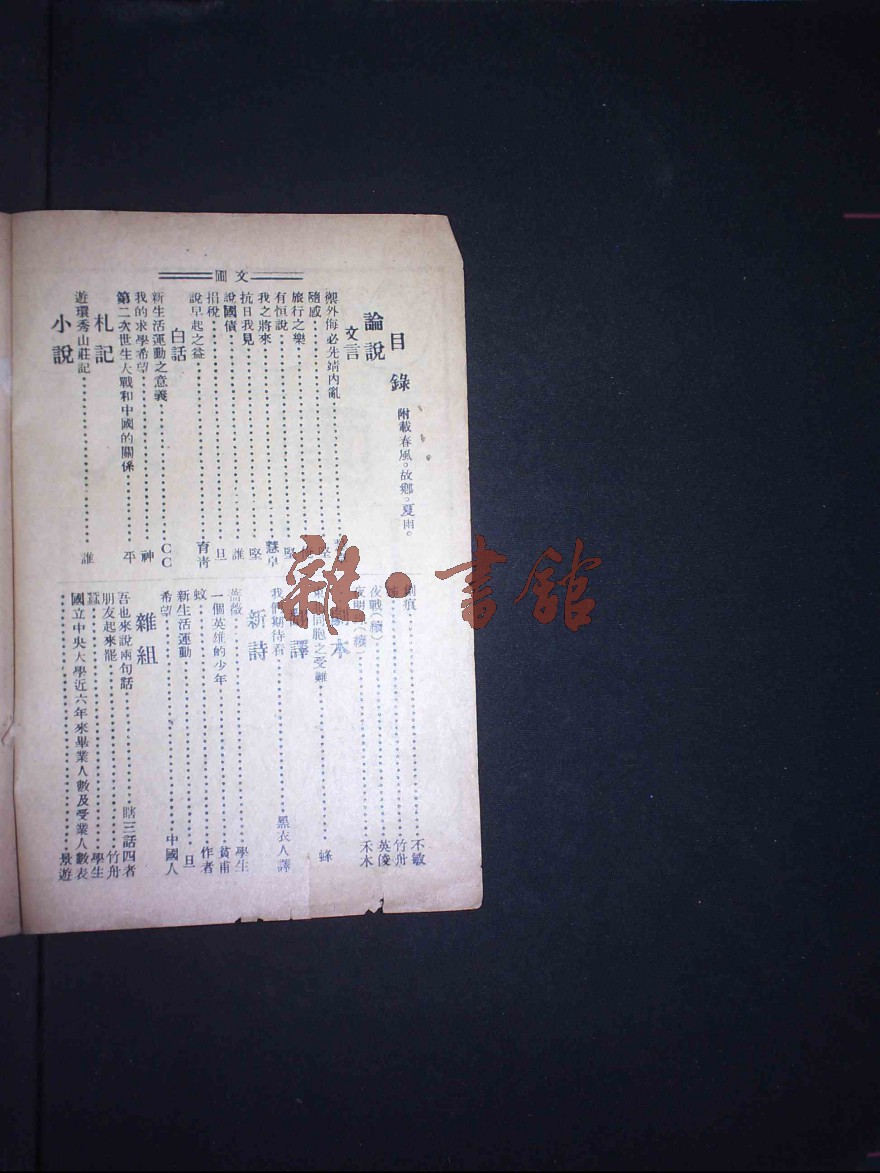 文圃
目錄 附載春風。故鄉。夏雨。
論說
文言
禦外侮必先靖內亂
隨感 堅
旅行之樂
有恒說 堅
我之將來 慧卓
抗日我見 堅
說國債 誰
捐稅 旦
說早起之益 育青
白話
新生活運動之意義 CC
我的求學希望 神
第二次世生大戰和中國的關係 平
札記
遊環秀山莊記 誰
小說
痕 不敏
竹舟
夜戰(續) 英俊
夜明(續) 禾本
劇本
同胞之受難 蜂
譯
我們期待着 黑衣人譯
新詩
薔薇 學生
一個英雄的少年 貧甫
蚊 作者
新生活運動 旦
希望 中國人
雜組
吾也來說兩句話 瞎三話四者
朋友起來罷 竹舟
蠶 學生
國立中央大學近六年來畢業人數及受業人數表 景遊
雜·書館